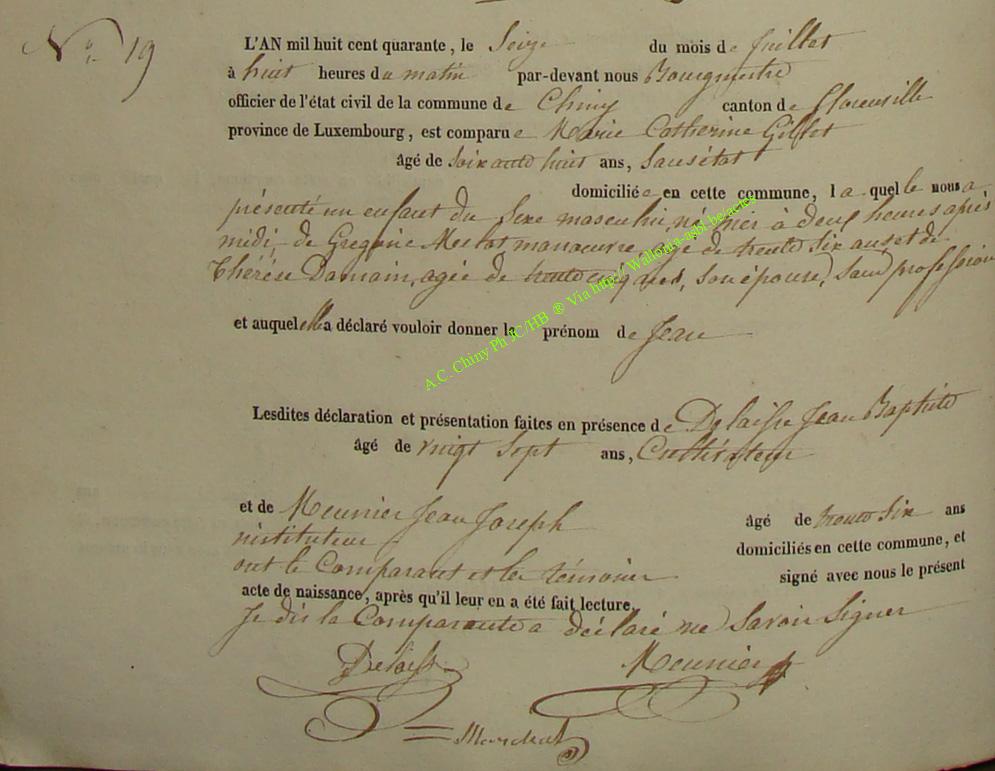 N° 19
L'AN mil huit cent quarante, le Seize du mois de Juillet
à huit heures du matin par-devant nous Bourgmestre
officier de l'état civil de la commune de Chiny canton de Florenville
province de Luxembourg, est comparue Marie Catherine Gillet
âgé de soixante huit ans, sans état
domiciliée en cette commune, laquelle nous a
présenté un enfant du sexe masculin, né hier à deux heures après
midi, de Gregoire manoeuvre, agé de trente six ans et de
Thérèse Damain, agée de trente cinq ans, son épouse, sans profession
et auquel elle a déclaré vouloir donner le prénom de Jean
Lesdites déclaration et présentation faites en présence de Delaisse Jean Baptiste
âgé de vingt sept ans, Cultivateur
et de Meunier Jean Joseph âgé de trente six ans
instituteur domiciliés en cette commune, et
ont le Comparant et les témoins signé avec nous le présent
acte de naissance, après qu'il leur en a été fait lecture.
Je dis la Comparante a déclaré ne savoir signer
Delaisse Meunier
A.C. Chiny Ph JC/HB ® Via http://Wallonia-asbl.be/actes